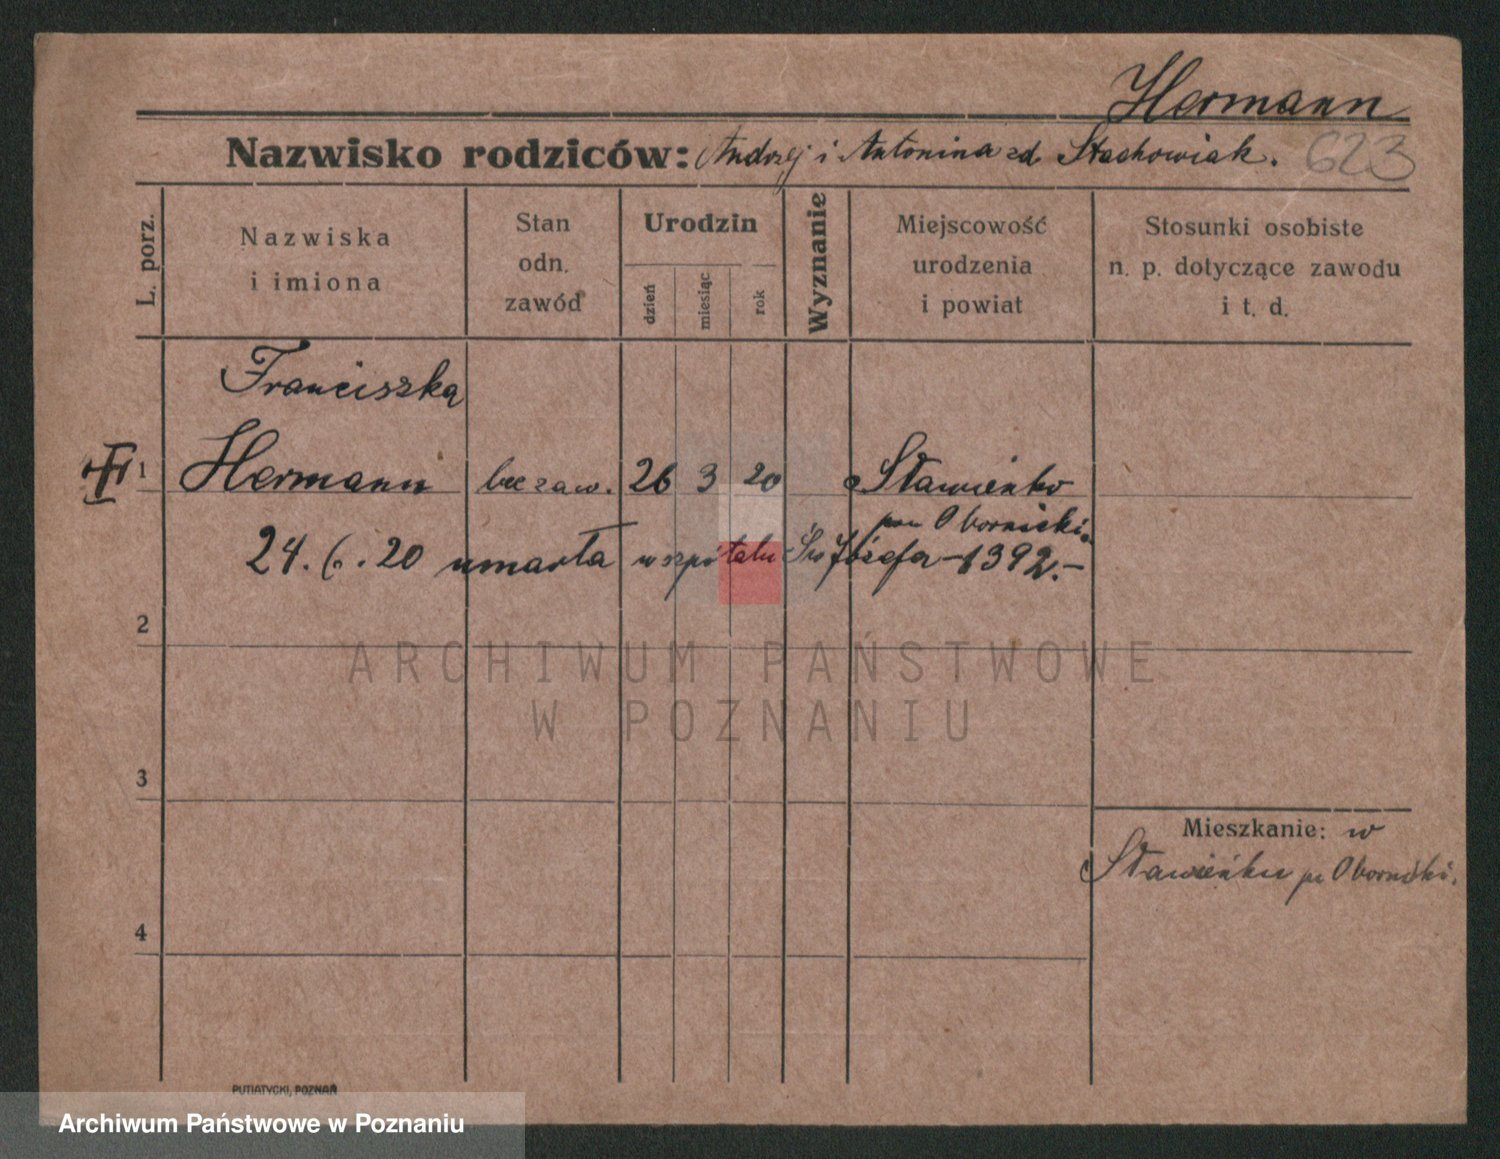 Hermann
Nazwisko rodziców: Andrzej i Antonina zd. Stachowiak. 623
L. porz.
Nazwiska
i imiona
Stan
odn.
zawód
Urodzin
dzień
miesiąc
rok
Wyznanie
Miejscowość
urodzenia
i powiat
Stosunki osobiste
n. p. dotyczące zawodu
i t. d.
Franciszka
1 Hermann bez zaw. 26 3 20 Sławienko
pow Obornicki.
24. 6. 20 umarła w szpitalu Św Józefa – 1392.–
2
ARCHIWUM PAŃSTWOWE
W POZNANIU
3
Mieszkanie: w
Sławieńku pw Obornicki.
4
PUTIATYCKI, POZNAŃ
Archiwum Państwowe w Poznaniu